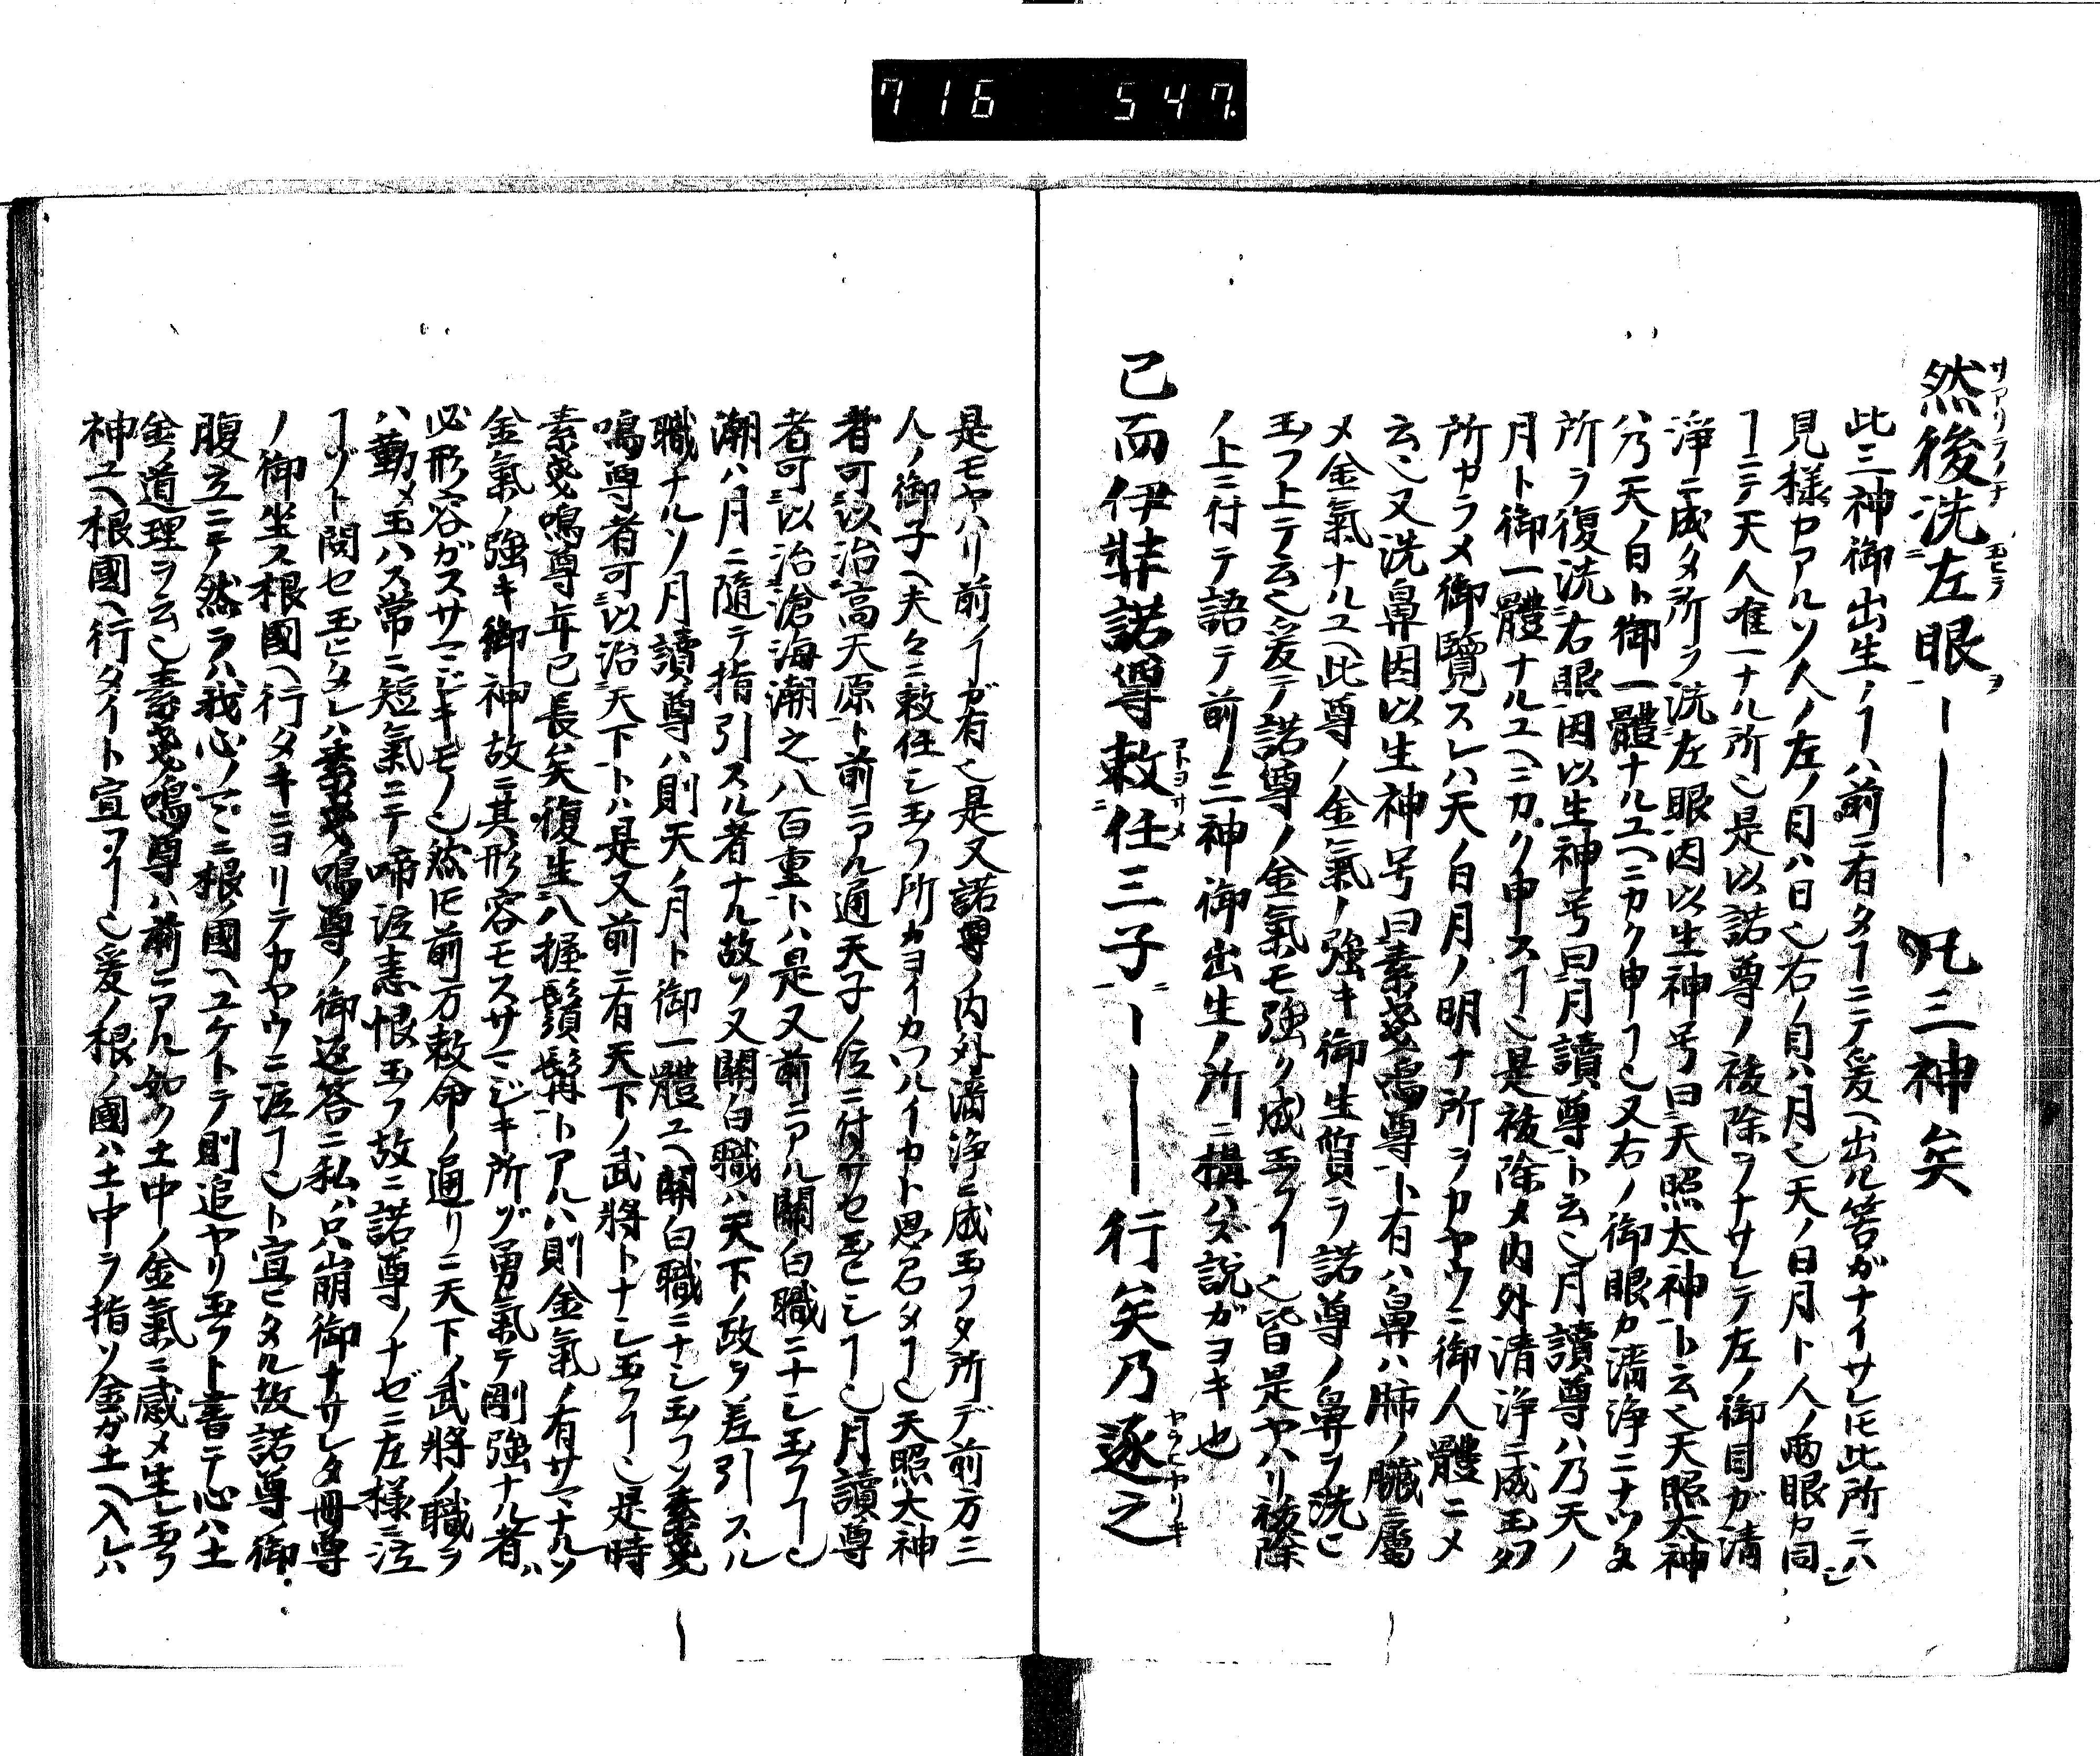 716 547.
然後洗左眼ーーー凡三神矣
此三神御出生ノヿハ前ニ有タヿニテ爰ヘ出ル筈ガナイサレ𪜈此所ニハ
見様カアルソ人ノ左ノ目ハ日也右ノ目ハ月也天ノ日月ト人ノ両眼カ同シ
ヿニテ天人唯一ナル所也是以諾尊ノ祓除ヲナサレテ左ノ御目ガ清
浄ニ成タ所ヲ洗左眼因以生神号曰天照太神ト云也天照太神
ハ乃天ノ日ト御一體ナルユヘニカク申ヿ也又右ノ御眼カ清浄ニナツタ
所ヲ復洗右眼因以生神号曰月讀尊ト云也月讀尊ハ乃天ノ
月ト御一體ナルユヘニカク申スヿ也是祓除メ内外清浄ニ成玉フタ
所カラメ御覽スレハ天ノ日月ノ明ナ所ヲカヤウニ御人體ニメ
云也又洗鼻因以生神号曰素戔嗚尊ト有ハ鼻ハ肺ノ臓ニ屬
メ金氣ナルユヘ此尊ノ金氣ノ強キ御生質ヲ諾尊ノ鼻ヲ洗ヒ
玉フ上テ云也爰テ諾尊ノ金氣モ強ク成玉フヿ也皆是ヤハリ祓除
ノ上ニ付テ語テ前ノ三神御出生ノ所ニ構ハズ説ガヨキ也
已而伊弉諾尊敕任三子ーーー行矣乃逐之
是モヤハリ前ノヿガ有也是又諾尊ノ内外清浄ニ成玉フタ所デ前方三
人ノ御子ヘ夫々ニ敕任シ玉フ所カヨイカワルイカト思召タヿ也天照大神
者可以治高天原ト前ニアル通天子ノ位ニ付サセ玉ヒシヿ也月讀尊
者可以治滄海潮之八百重トハ是又前ニアル關白職ニナシ玉フヿ也
潮ハ月ニ隨テ指引スル者ナル故ソ又關白職ハ天下ノ政ヲ差引スル
職ナルソ月讀尊ハ則天ノ月ト御一體ユヘ關白職ニナシ玉フソ素戔
嗚尊者可以治天下トハ是又前ニ有天下ノ武將トナシ玉フヿ也是時
素戔嗚尊年已長矣復生八握鬚髯トアルハ則金氣ノ有サマナルソ
金氣ノ強キ御神故ニ其形容モスサマジキ所ゾ勇氣テ剛強ナル者ハ
必形容ガスサマジキモノ也然𪜈前方敕命ノ通リニ天下ノ武將ノ職ヲ
ハ勤メ玉ハス常ニ短氣ニテ啼泣恚恨玉フ故ニ諾尊ノナゼニ左様ニ泣
ヿゾト問セ玉ヒタレハ素戔嗚尊ノ御返答ニ私ハ只崩御ナサレタ冊尊
ノ御坐ス根國ヘ行タキニヨリテカヤウニ泣ヿ也ト宣ヒタル故諾尊御
腹立ニテ然ラハ我心ノマヽニ根ノ國ヘユケトテ則追ヤリ玉フト書テ心ハ土
金ノ道理ヲ云也素戔嗚尊ハ前ニアル如ク土中ノ金氣ニ感メ生レ玉フ
神ユヘ根國ヘ行タイト宣フヿ也爰ノ根ノ國ハ土中ヲ指ソ金ガ土ヘ入レハ